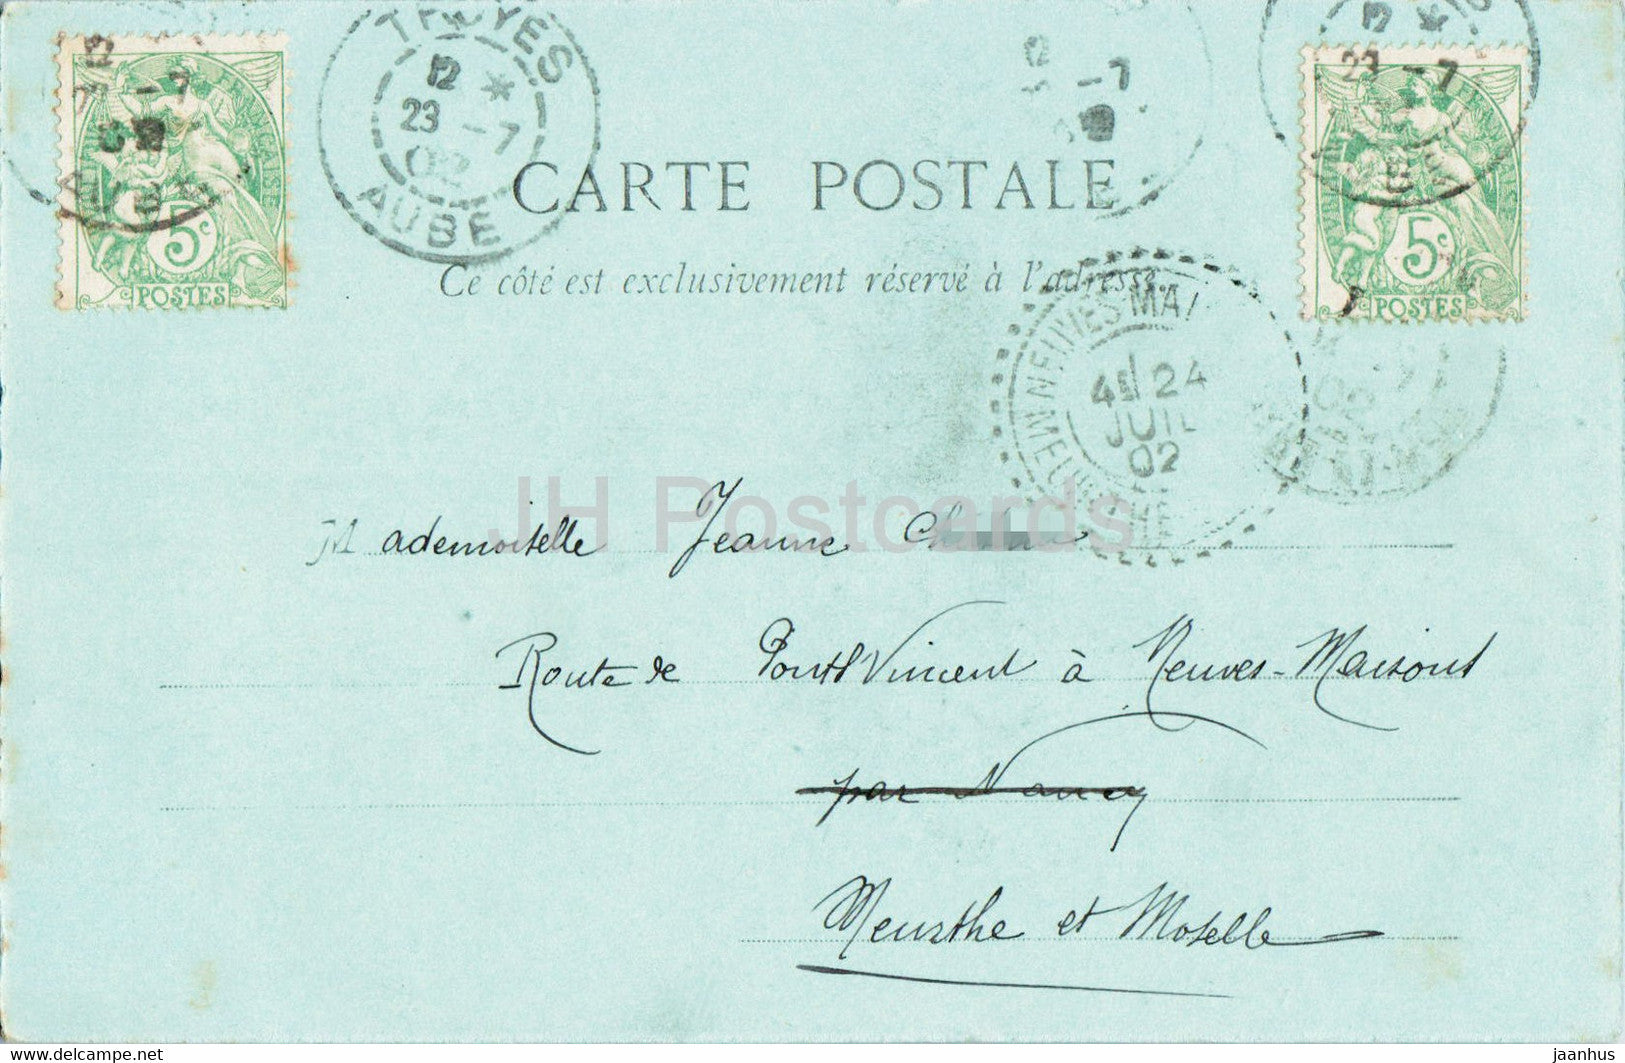 TROYES
12
23 -7
02
AUBE
12
-7
12
23 -7
RÉPUBLIQUE FRANÇAISE
5c
POSTES
5c
POSTES
CARTE POSTALE
Ce côté est exclusivement réservé à l'adresse.
NEUVES MAI
4E 24
JUIL
02
JH Postcards
Mademoiselle Jeanne
Route de Pont St Vincent à Neuves-Maisons
par Nancy
Meurthe et Moselle
www.delcampe.net
jaanhus